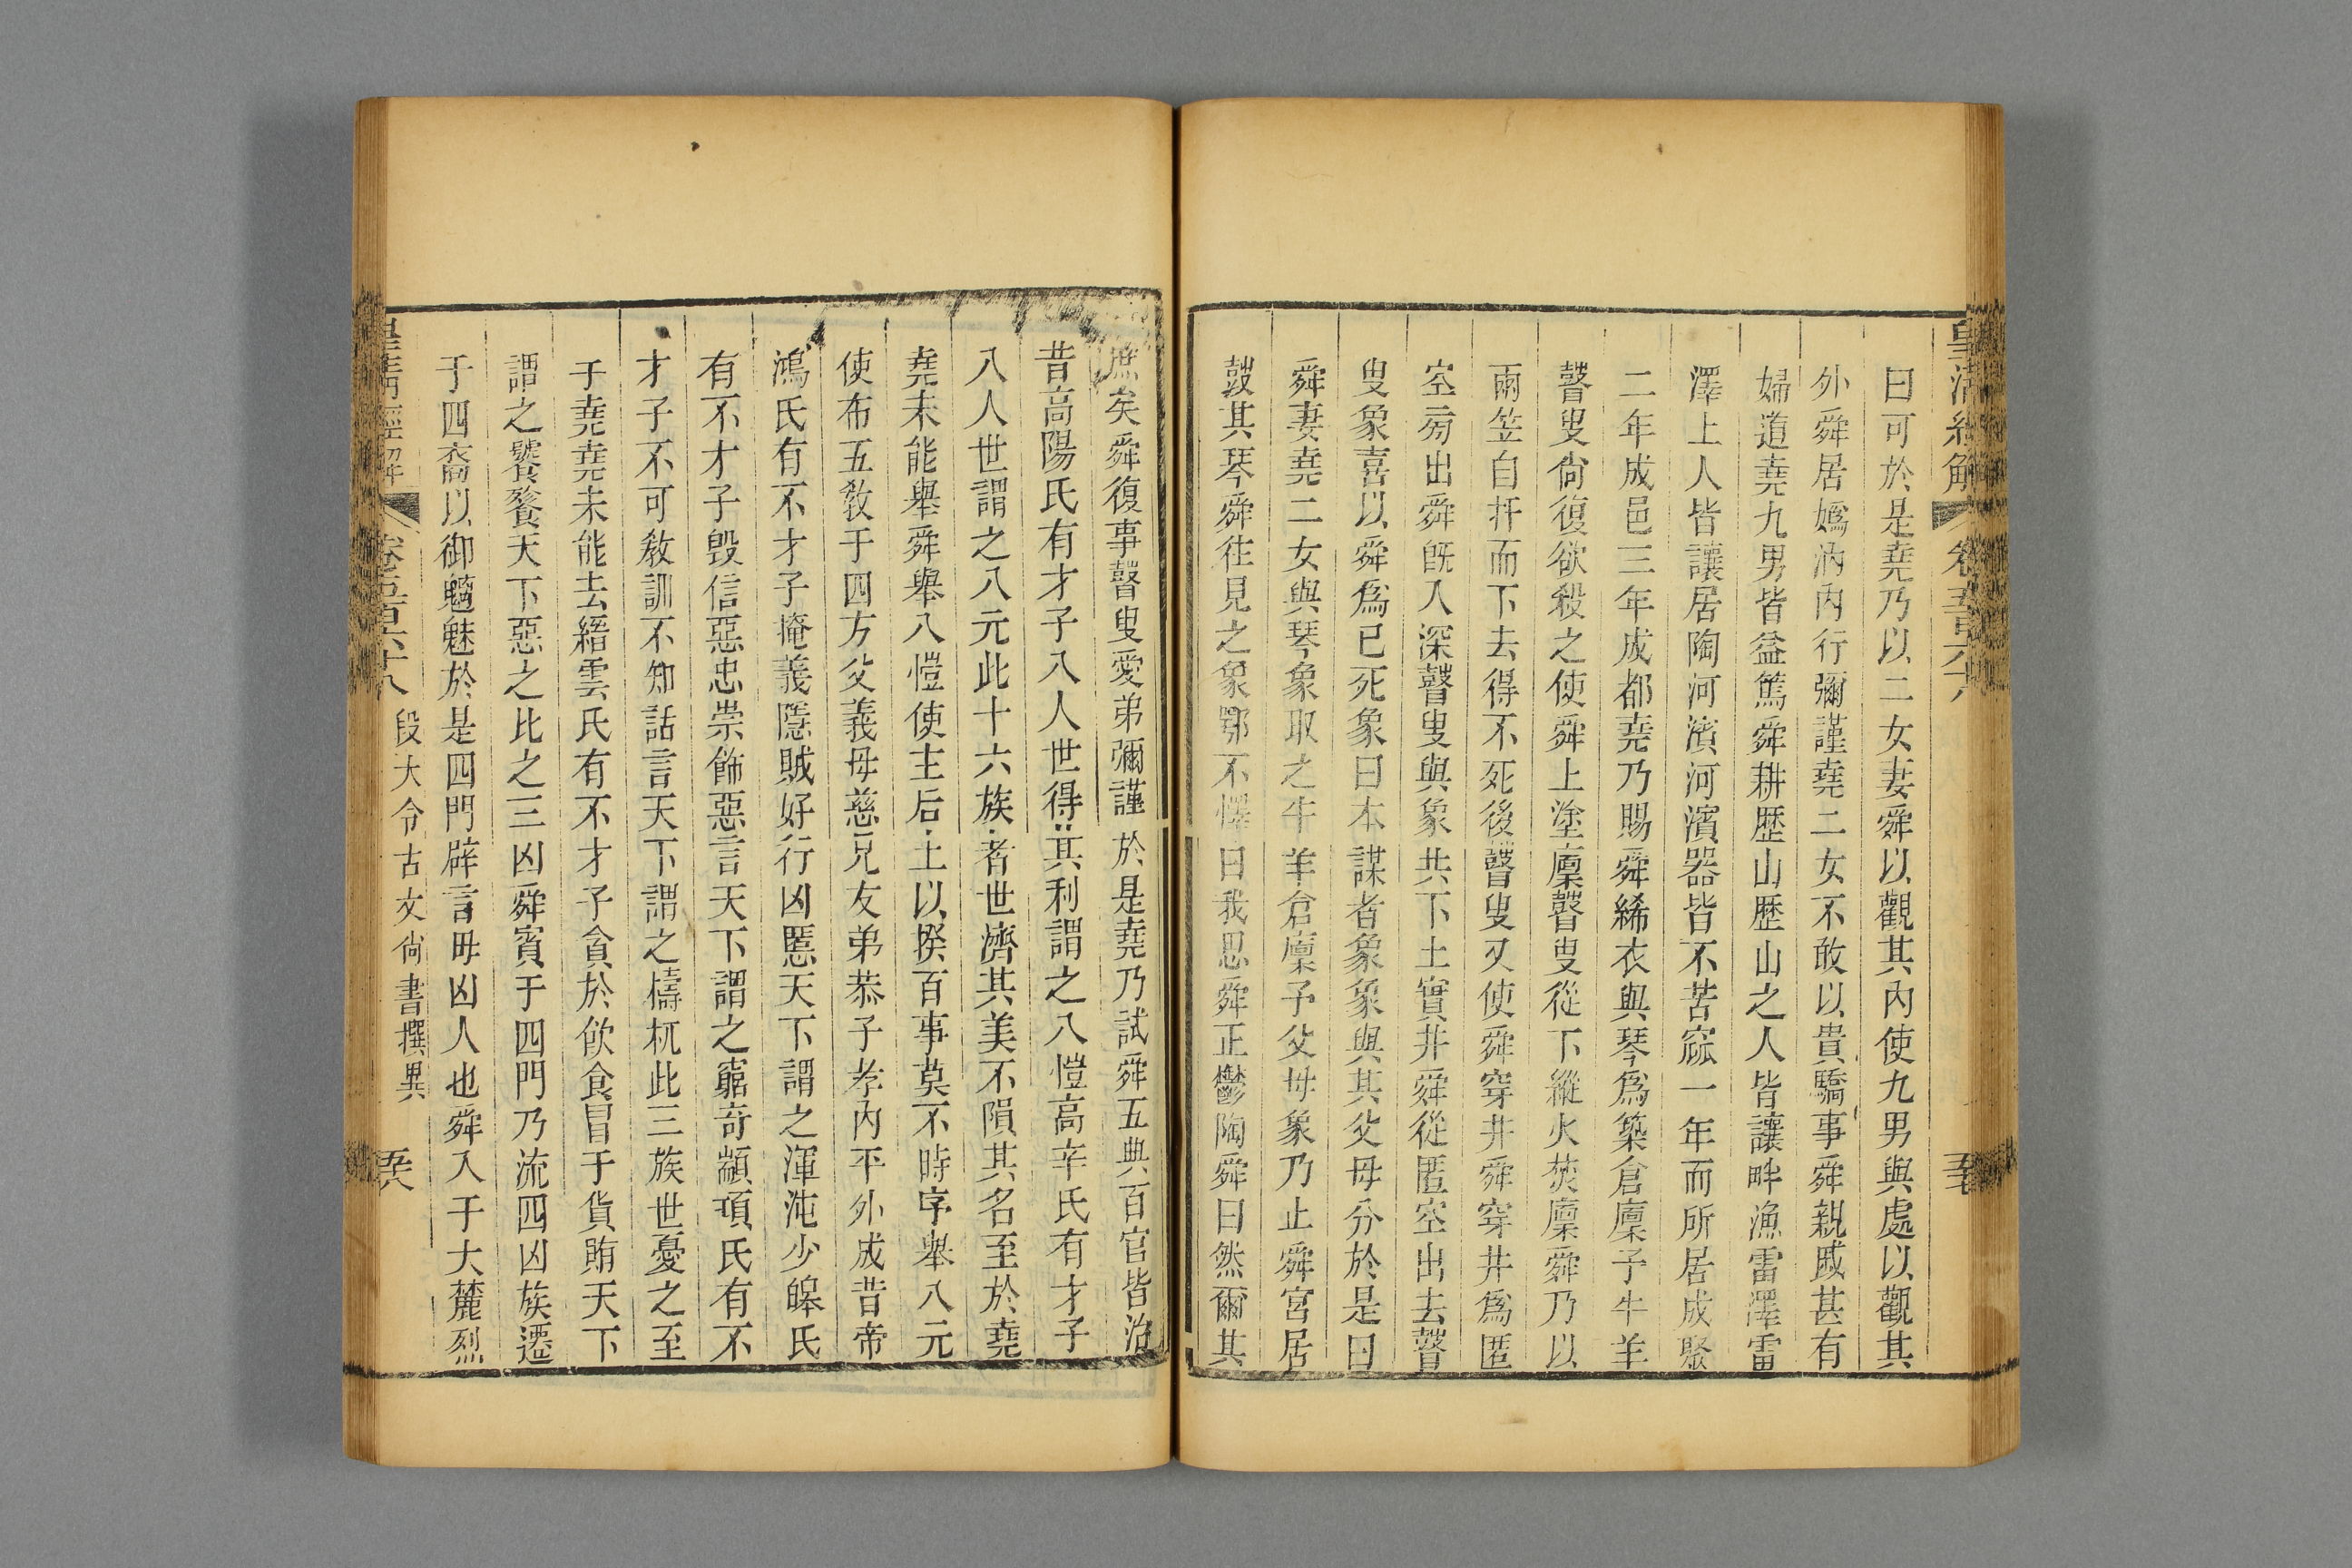 皇清經解 卷五百六十八
曰可於是堯乃以二女妻舜以觀其內使九男與處以觀其
外舜居嬀汭內行彌謹堯二女不敢以貴驕事舜親戚甚有
婦道堯九男皆益篤舜耕歷山歷山之人皆讓畔漁雷澤雷
澤上人皆讓居陶河濱河濱器皆不苦窳一年而所居成聚
二年成邑三年成都堯乃賜舜絺衣與琴爲築倉廩予牛羊
瞽叟尙復欲殺之使舜上塗廩瞽叟從下縱火焚廩舜乃以
兩笠自扞而下去得不死後瞽叟又使舜穿井舜穿井爲匿
空旁出舜旣入深瞽叟與象共下土實井舜從匿空出去瞽
叟象喜以舜爲已死象曰本謀者象象與其父母分於是曰
舜妻堯二女與琴象取之牛羊倉廩予父母象乃止舜宮居
鼓其琴舜往見之象鄂不懌曰我思舜正鬱陶舜曰然爾其
庶矣舜復事瞽叟愛弟彌謹於是堯乃試舜五典百官皆治
昔高陽氏有才子八人世得其利謂之八愷高辛氏有才子
八人世謂之八元此十六族者世濟其美不隕其名至於堯
堯未能舉舜舉八愷使主后土以揆百事莫不時序舉八元
使布五敎于四方父義母慈兄友弟恭子孝內平外成昔帝
鴻氏有不才子掩義隱賊好行凶慝天下謂之渾沌少皞氏
有不才子毀信惡忠崇飾惡言天下謂之窮奇顓頊氏有不
才子不可敎訓不知話言天下謂之檮杌此三族世憂之至
于堯堯未能去縉雲氏有不才子貪於飮食冒于貨賄天下
謂之饕餮天下惡之比之三凶舜賓于四門乃流四凶族遷
于四裔以御魑魅於是四門辟言毋凶人也舜入于大麓烈
皇淸經解 卷五百六十八 段大令古文尙書撰異 五六